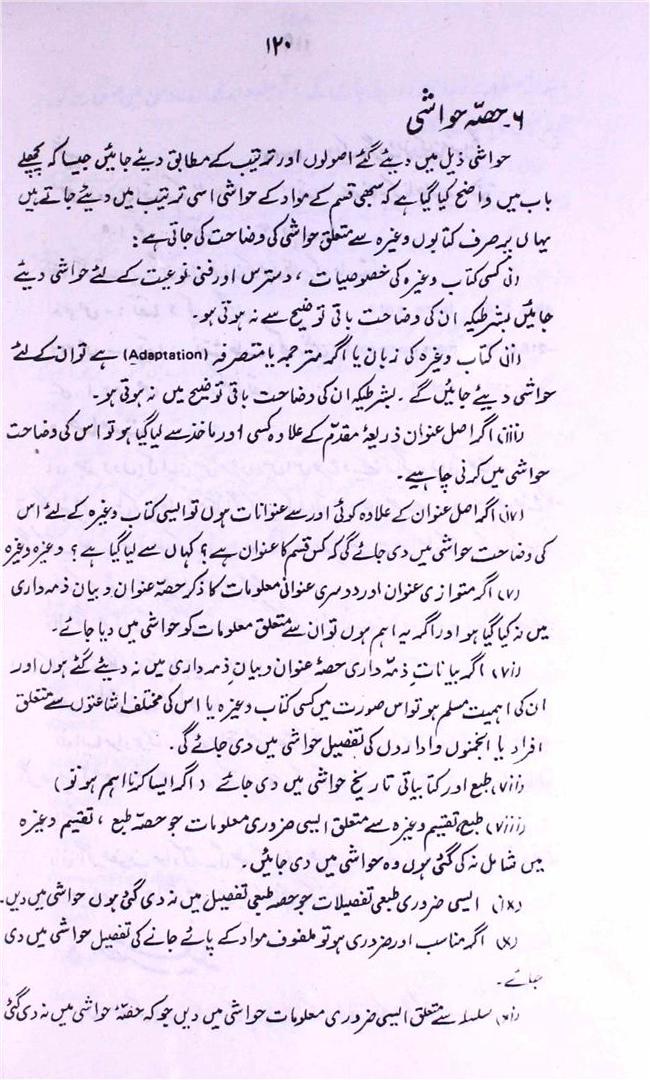 ۱۲۰
۶۔ حصّہ حواشی
حواشی ذیل میں دیئے گئے اصولوں اور ترتیب کے مطابق دیئے جائیں جیسا کہ پچھلے
باب میں واضح کیا گیا ہے کہ سبھی قسم کے مواد کے حواشی اسی ترتیب میں دیئے جاتے ہیں
یہاں پر صرف کتابوں وغیرہ سے متعلق حواشی کی وضاحت کی جاتی ہے:
(i) کسی کتاب وغیرہ کی خصوصیات، دسترس اور فنی نوعیت کے لئے حواشی دیئے
جائیں بشرطیکہ ان کی وضاحت باقی توضیح سے نہ ہوتی ہو۔
(ii) کتاب وغیرہ کی زبان یا اگر مترجمہ یا متصرفہ (Adaptation) ہے تو ان کے لئے
حواشی دیئے جائیں گے۔ بشرطیکہ ان کی وضاحت باقی توضیح میں نہ ہوتی ہو۔
(iii) اگر اصل عنوان ذریعۂ مقدّم کے علاوہ کسی اور ماخذ سے لیا گیا ہو تو اس کی وضاحت
حواشی میں کرنی چاہیے۔
(iv) اگر اصل عنوان کے علاوہ کوئی اور سے عنوانات ہوں تو ایسی کتاب وغیرہ کے لئے اس
کی وضاحت حواشی میں دی جائے گی کہ کس قسم کا عنوان ہے؟ کہاں سے لیا گیا ہے؟ وغیرہ وغیرہ
(v) اگر متوازی عنوان اور دوسری عنوانی معلومات کا ذکر حصّہ عنوان و بیان ذمہ داری
میں نہ کیا گیا ہو اور اگر یہ اہم ہوں تو ان سے متعلق معلومات کو حواشی میں دیا جائے۔
(vi) اگر بیانات ذمّہ داری حصۂ عنوان و بیان ذمہ داری میں نہ دیئے گئے ہوں اور
ان کی اہمیت مسلم ہو تو اس صورت میں کسی کتاب وغیرہ یا اس کی مختلف اشاعتوں سے متعلق
افراد یا انجمنوں و اداروں کی تفصیل حواشی میں دی جائے گی۔
(vii) طبع اور کتابیاتی تاریخ حواشی میں دی جائے (اگر ایسا کرنا اہم ہو تو)
(viii) طبع، تقیم وغیرہ سے متعلق ایسی ضروری معلومات جو حصّہ طبع، تقیم وغیرہ
میں شامل نہ کی گئی ہوں وہ حواشی میں دی جائیں۔
(ix) ایسی ضروری طبعی تفصیلات جو حصّہ طبعی تفصیل میں نہ دی گئی ہوں حواشی میں دیں۔
(x) اگر مناسب اور ضروری ہو تو ملفوف مواد کے پائے جانے کی تفصیل حواشی میں دی
جائے۔
سلسلہ سے متعلق ایسی ضروری معلومات حواشی میں دیں جو کہ حصّۂ حواشی میں نہ دی گئی